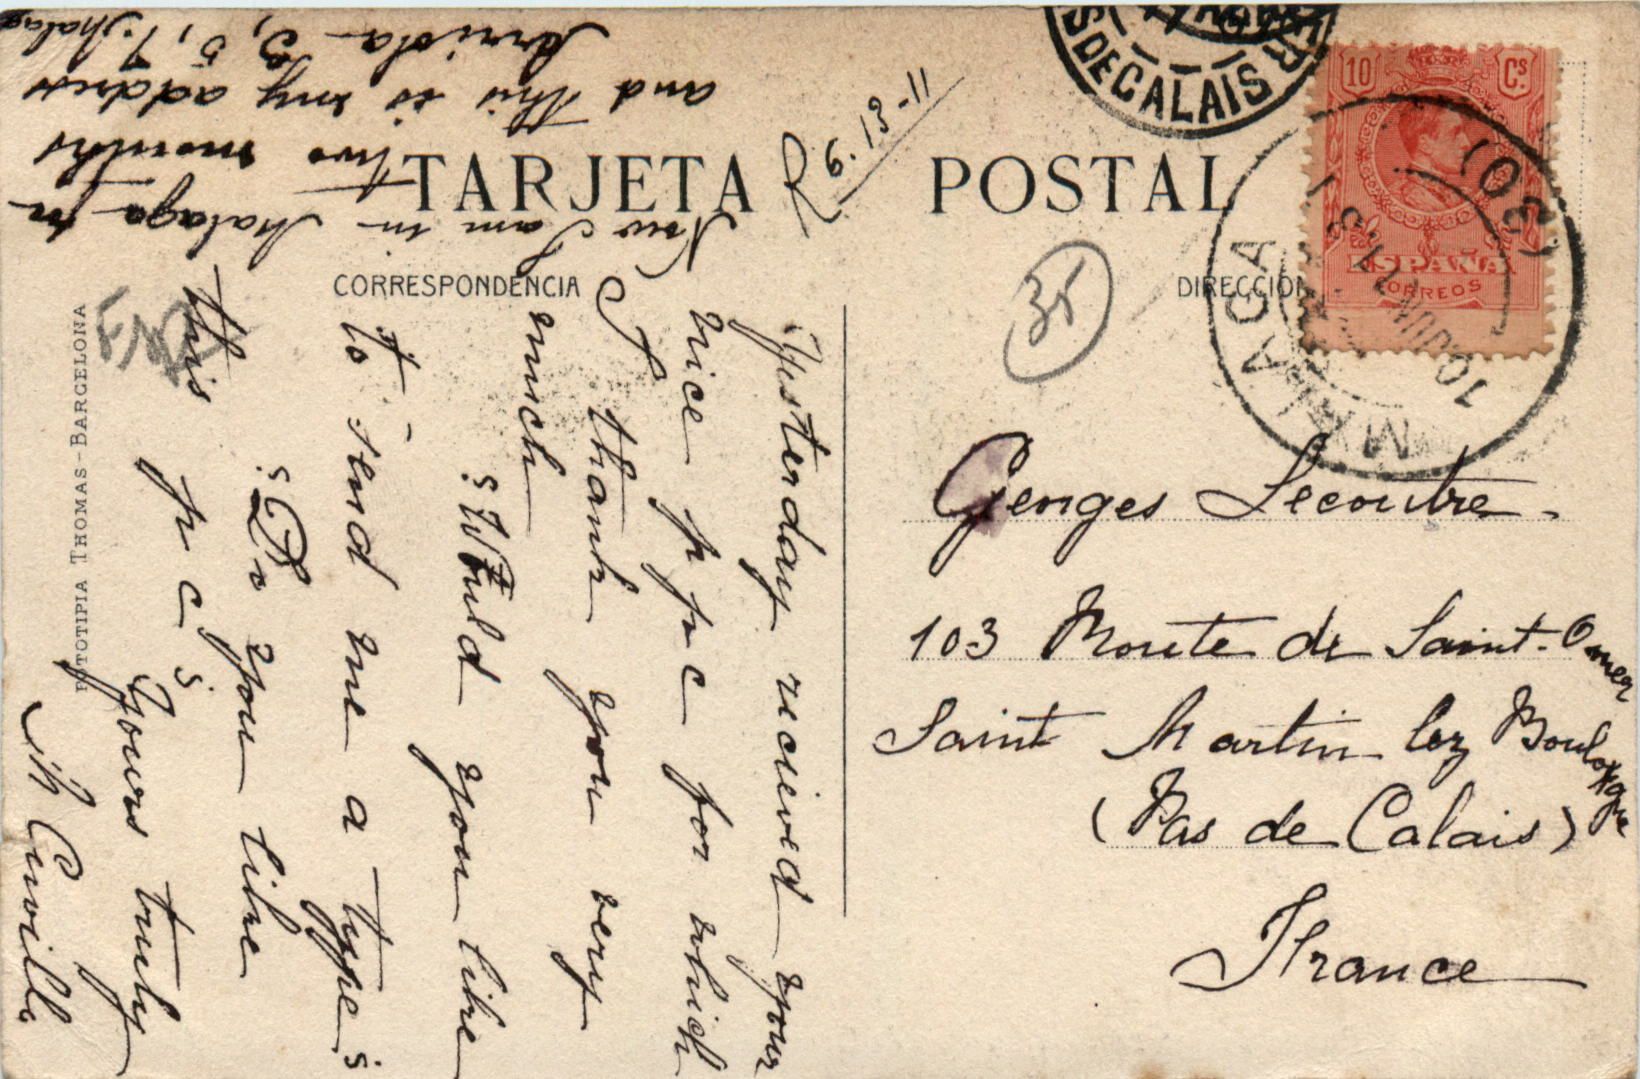 TARJETA POSTAL
CORRESPONDENCIA
DIRECCIÓN
10 Cs.
ESPAÑA
CORREOS
MALAGA
S DE CALAIS
6.13-11
35
Georges Lecoutre.
103 Route de Saint-Omer
Saint Martin lez Boulogne
(Pas de Calais)
France
Yesterday recieved your
nice p p c for which
I thank you very
much
¿Would you like
to send me a types
¿Do you like
this p c s
Yours truly
M Cuvillo
Now I am in Malaga for
two months
and this is my address
Arriola 3, 5, 7. Malaga
FOTOTIPIA THOMAS-BARCELONA